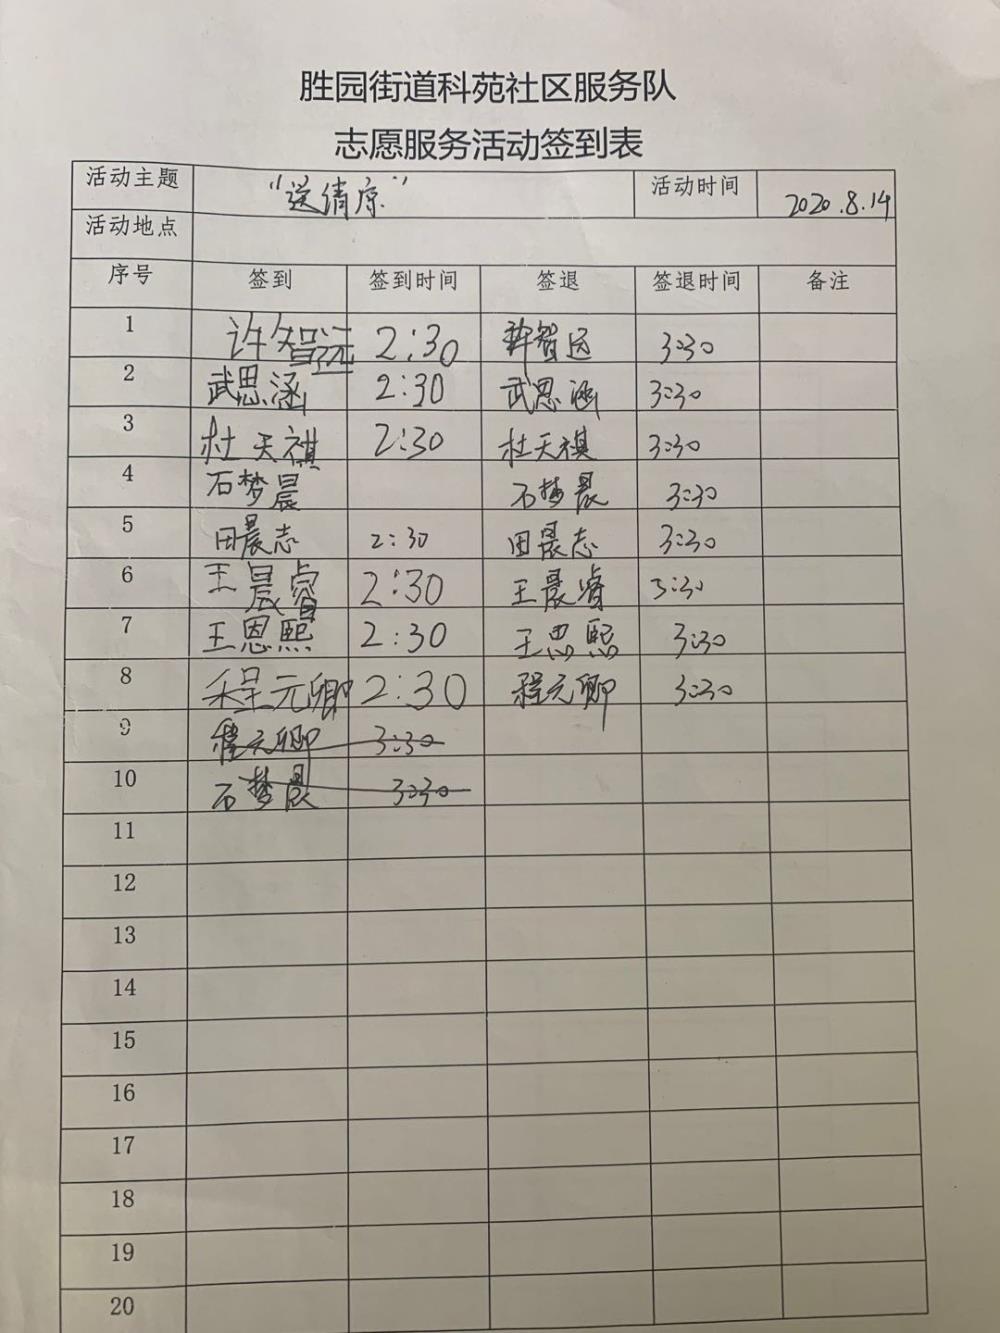 胜园街道科苑社区服务队
志愿服务活动签到表
活动主题 “送清凉” 活动时间 2020.8.14
活动地点
序号 签到 签到时间 签退 签退时间 备注
1 许智远 2:30 许智远 3:30
2 武思涵 2:30 武思涵 3:30
3 杜天祺 2:30 杜天祺 3:30
4 石梦晨 石梦晨 3:30
5 田晨志 2:30 田晨志 3:30
6 王晨睿 2:30 王晨睿 3:30
7 王恩熙 2:30 王思熙 3:30
8 程元卿 2:30 程元卿 3:30
9 程元卿 3:30
10 石梦晨 3:30
11
12
13
14
15
16
17
18
19
20